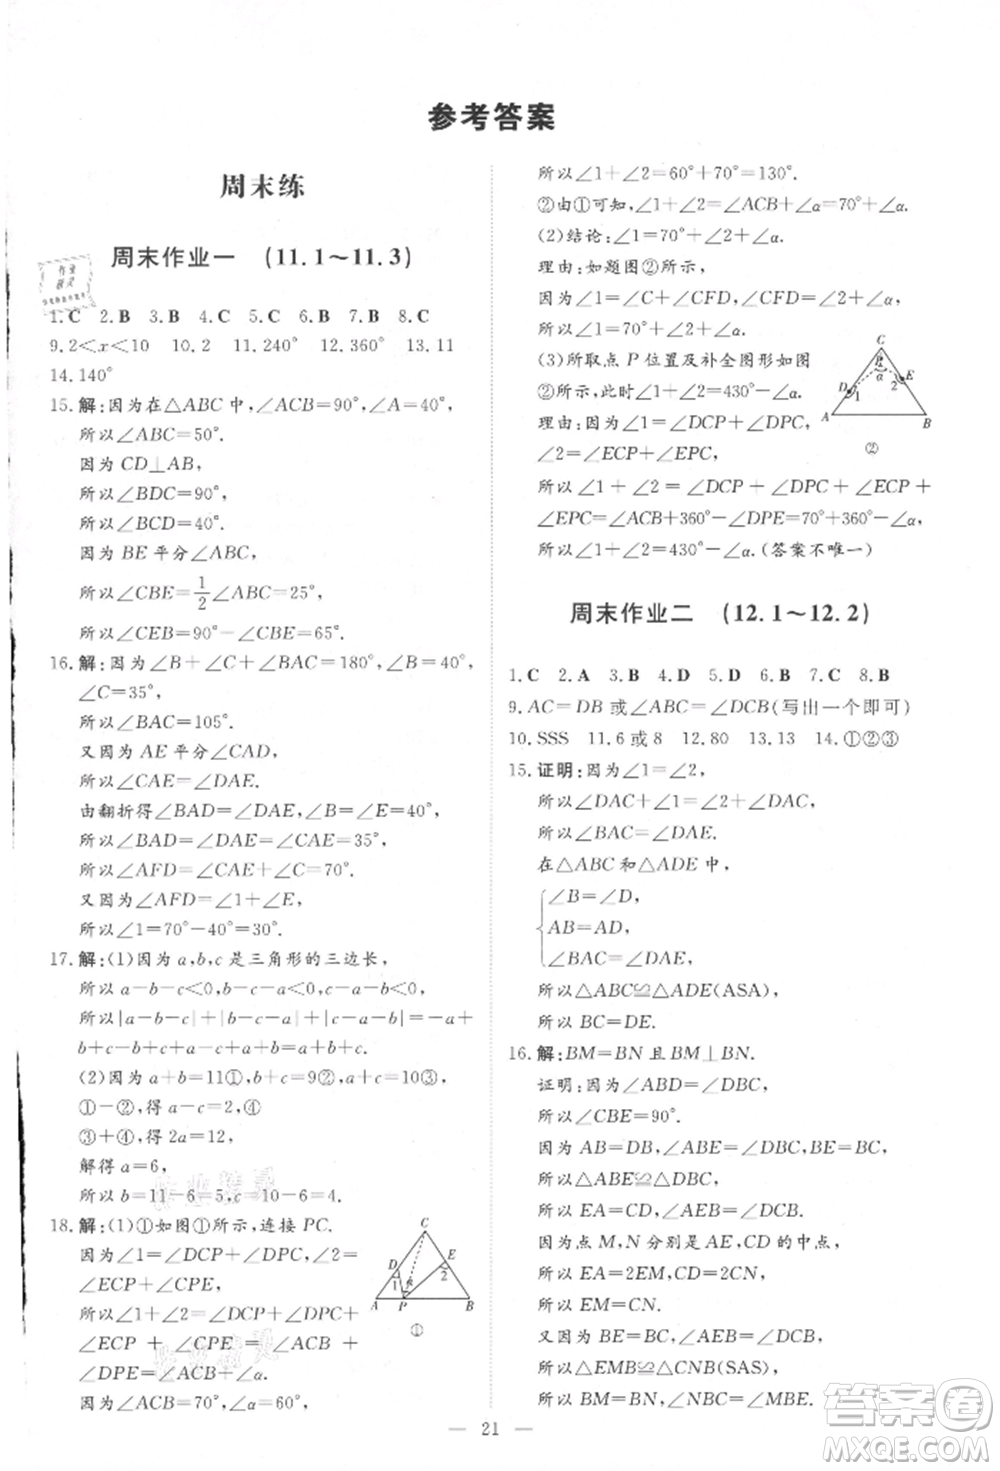 参考答案
周末练
周末作业一 (11.1～11.3)
1.C 2.B 3.B 4.C 5.C 6.B 7.B 8.C
9.2<x<10 10.2 11.240° 12.360° 13.11
14.140°
15.解:因为在△ABC中,∠ACB=90°,∠A=40°,
所以∠ABC=50°.
因为CD⊥AB,
所以∠BDC=90°,
所以∠BCD=40°.
因为BE平分∠ABC,
所以∠CBE=1/2∠ABC=25°,
所以∠CEB=90°-∠CBE=65°.
16.解:因为∠B+∠C+∠BAC=180°,∠B=40°,
∠C=35°,
所以∠BAC=105°.
又因为AE平分∠CAD,
所以∠CAE=∠DAE.
由翻折得∠BAD=∠DAE,
所以∠BAD=∠DAE=∠CAE=35°.
所以∠AFD=∠CAE+∠C=70°.
又因为∠AFD=∠1+∠E,
所以∠1=70°-40°=30°.
17.解:(1)因为a,b,c是三角形的三边长,
所以a-b-c<0,b-c-a<0,c-a-b<0,
所以|a-b-c|+|b-c-a|+|c-a-b|=-a+
b+c-b+c+a-c+a+b=a+b+c.
(2)因为a+b=11①,b+c=9②,a+c=10③,
①-②,得a-c=2,④
③+④,得2a=12,
解得a=6,
所以b=11-6=5,c=10-6=4.
18.解:(1)①如图①所示,连接PC.
因为∠1=∠DCP+∠DPC,∠2=
∠ECP+∠CPE,
所以∠1+∠2=∠DCP+∠DPC+
∠ECP+∠CPE=∠ACB+
∠DPE=∠ACB+∠α.
因为∠ACB=70°,∠α=60°,
C
D
E
1
2
α
A
P
B
①
所以∠1+∠2=60°+70°=130°.
②由①可知,∠1+∠2=∠ACB+∠α=70°+∠α.
(2)结论:∠1=70°+∠2+∠α.
理由:如题图②所示,
因为∠1=∠C+∠CFD,∠CFD=∠2+∠α,
所以∠1=70°+∠2+∠α.
(3)所取点P位置及补全图形如图
②所示,此时∠1+∠2=430°-∠α.
理由:因为∠1=∠DCP+∠DPC,
∠2=∠ECP+∠EPC,
所以∠1+∠2=∠DCP+∠DPC+∠ECP+
∠EPC=∠ACB+360°-∠DPE=70°+360°-∠α,
所以∠1+∠2=430°-∠α.(答案不唯一)
C
P
D
α
E
1
2
A
B
②
周末作业二 (12.1～12.2)
1.C 2.A 3.B 4.D 5.D 6.B 7.C 8.B
9.AC=DB或∠ABC=∠DCB(写出一个即可)
10.SSS 11.6或8 12.80 13.13 14.①②③
15.证明:因为∠1=∠2,
所以∠DAC+∠1=∠2+∠DAC,
所以∠BAC=∠DAE.
在△ABC和△ADE中,
∠B=∠D,
AB=AD,
∠BAC=∠DAE,
所以△ABC≌△ADE(ASA),
所以BC=DE.
16.解:BM=BN且BM⊥BN.
证明:因为∠ABE=∠DBC,
所以∠CBE=90°.
因为AB=DB,∠ABE=∠DBC,BE=BC,
所以△ABE≌△DBC,
所以EA=CD,∠AEB=∠DCB.
因为点M,N分别是AE,CD的中点,
所以EA=2EM,CD=2CN,
所以EM=CN.
又因为∠AEB=∠DCB,BE=BC,
所以△EMB≌△CNB(SAS),
所以BM=BN,∠NBC=∠MBE.
21
作业
精灵
答案卷
MXQE.COM